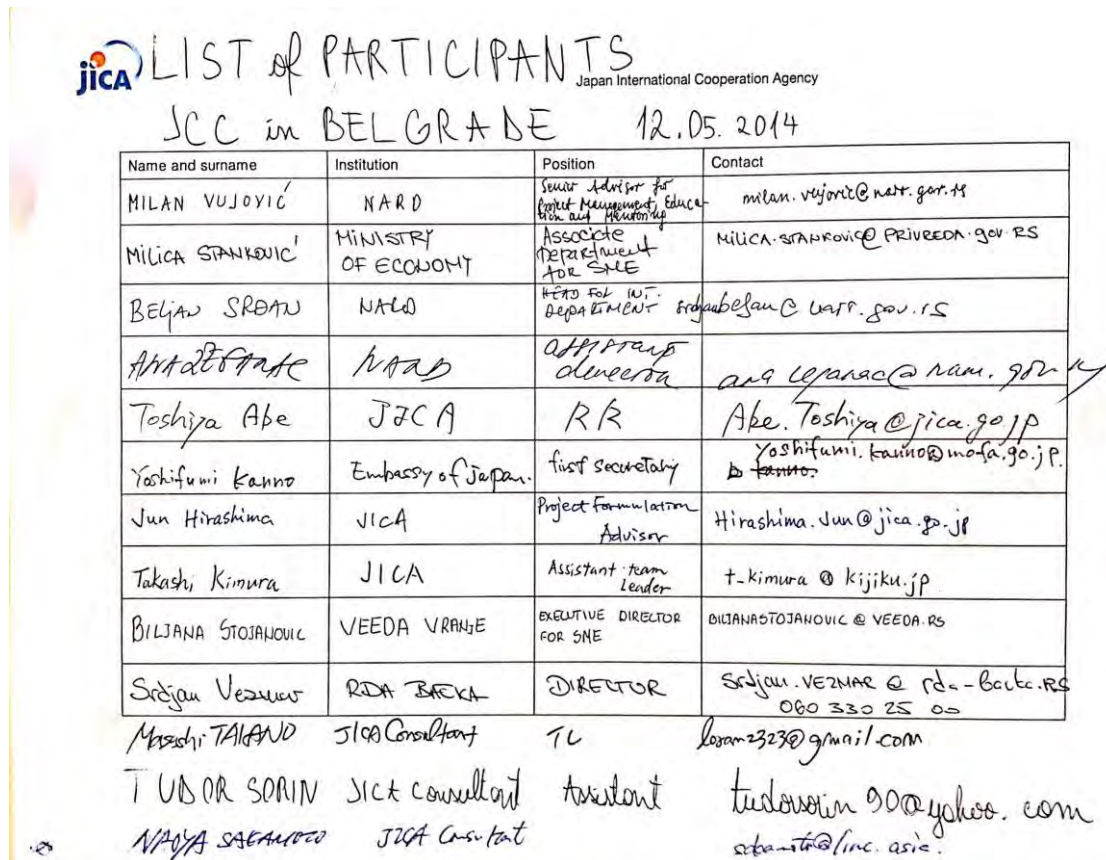 jica LIST of PARTICIPANTS
Japan International Cooperation Agency
JCC in BELGRADE 12.05.2014
Name and surname Institution Position Contact
MILAN VUJOVIĆ NARD Senior Advisor for Project Management, Education and Mentoring milan.vujovic@narr.gov.rs
MILICA STANKOVIĆ MINISTRY OF ECONOMY Associate Department FOR SME MILICA.STANKOVIC@PRIVREDA.gov.RS
BELJAN SRDAN NARD HEAD FOR INT. DEPARTMENT srdjanbeljan@narr.gov.rs
NARD
Toshiya Abe JICA RR Abe.Toshiya@jica.go.jp
Yoshifumi Kanno Embassy of Japan. first secretary Yoshifumi.kanno@mofa.go.jp.
Jun Hirashima JICA Project Formulation Advisor Hirashima.Jun@jica.go.jp
Takashi Kimura JICA Assistant team leader t_kimura@kijiku.jp
BILJANA STOJANOVIC VEEDA VRANJE EXECUTIVE DIRECTOR FOR SME BILJANASTOJANOVIC@VEEDA.RS
Srdjan Vezmar RDA BACKA DIRECTOR Srdjan.VEZMAR@rda-backa.RS
060 330 25 00
JICA Consultant TL
TUDOR SORIN JICA consultant Assistant tudorsorin90@yahoo.com
NAOYA SAKAMOTO JICA Consultant